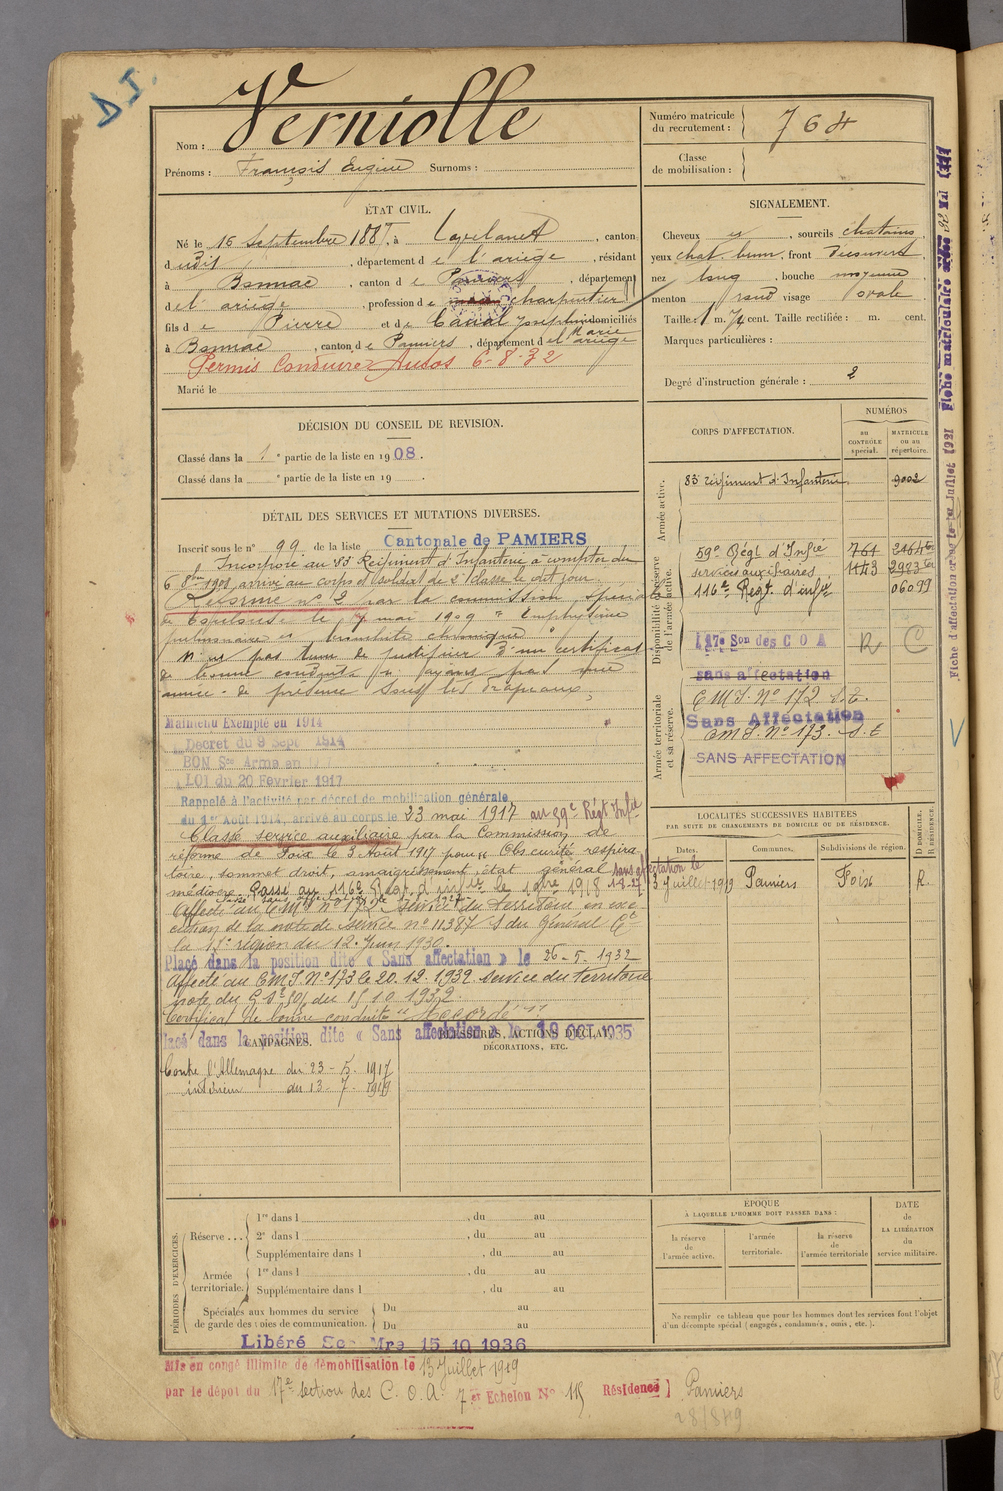 D I.
Verniolle
Nom :
Prénoms : François Eugène Surnoms :
Numéro matricule du recrutement : 764
Classe de mobilisation :
ÉTAT CIVIL.
Né le 16 Septembre 1887, à Lavelanet, canton
d udit, département d e l'ariège, résidant
à Bonnac, canton d e Pamiers, département
d el' ariège, profession d e charpentier
fils d e Pierre et d e Canal Joséphine Marie domiciliés
à Bonnac, canton d e Pamiers, département d el' ariège
Permis Conduire Autos 6-8-32
Marié le
SIGNALEMENT.
Cheveux et, sourcils chatains
yeux chat. front Découvert
nez long, bouche moyenne
menton rond visage ovale
Taille : 1 m. 74 cent. Taille rectifiée : m. cent.
Marques particulières :
Degré d'instruction générale : 2
DÉCISION DU CONSEIL DE REVISION.
Classé dans la 1 e partie de la liste en 1908.
Classé dans la e partie de la liste en 19 .
CORPS D'AFFECTATION.
NUMÉROS
au CONTRÔLE spécial.
MATRICULE ou au répertoire.
Armée active.
83e régiment d'Infanterie 9002
Disponibilité et réserve de l'armée active.
59e Régt d'Infie 761
services auxiliaires 1143
116e Régt. d'infie 06099
17e Son des C O A R C
sans affectation
Armée territoriale et sa réserve.
C M I. N° 172 S.T.
Sans Affectation
C M I. N° 173. S.T
SANS AFFECTATION
DÉTAIL DES SERVICES ET MUTATIONS DIVERSES.
Inscrit sous le n° 99 de la liste Cantonale de PAMIERS
Incorporé au 83 Régiment d'Infanterie à compter du
6 8bre 1908, arrivé au corps et soldat de 2e classe le dit jour.
Réformé n° 2 par la commission spéciale
de Toulouse le 7 mai 1909 " Emphysème
pulmonaire et bronchite chronique "
N'est pas tenu de justifier d'un certificat
de bonne conduite n'ayant pas une
année de présence sous les drapeaux.
Maintenu Exempté en 1914
Décret du 9 Sept 1914
BON Sce Armé en
LOI du 20 Février 1917
Rappelé à l'activité par décret de mobilisation générale
du 1er Août 1914, arrivé au corps le 23 mai 1917 au 59e Régt Infie
Classé service auxiliaire par la Commission de
réforme de Foix le 3 Août 1917 pour " Obscurité respira
toire, sommet droit, amaigrissement, état général
médiocre. Passé au 116e Régt d'infie le 1918
Affecté au C M I n° 172 Service du territoire en exé
cution de la note de service n° 11387 / S du Général Ct
la 17e région du 12. Juin 1930.
Placé dans la position dite « Sans affectation » le 26-5. 1932
Affecté au C M I. N° 173 le 20.12.1932 Service du territoire
note du G 15 10 1932
Certificat de bonne conduite " Accordé "
Placé dans la position dite « Sans affectation » le 19 OCT. 1935
LOCALITÉS SUCCESSIVES HABITÉES
PAR SUITE DE CHANGEMENTS DE DOMICILE OU DE RÉSIDENCE.
Dates. Communes. Subdivisions de région. D DOMICILE. R RÉSIDENCE.
13 Juillet 1919 Pamiers Foix R.
CAMPAGNES.
BLESSURES, ACTIONS D'ÉCLAT, DÉCORATIONS, ETC.
Contre l'Allemagne du 23 - 5. 1917
intérieur du 13 - 7 - 1919
PÉRIODES D'EXERCICES.
Réserve ... 1re dans l , du au
2e dans l , du au
Supplémentaire dans l , du au
Armée territoriale. 1re dans l , du au
Supplémentaire dans l , du au
Spéciales aux hommes du service de garde des voies de communication. Du au
Du au
ÉPOQUE
À LAQUELLE L'HOMME DOIT PASSER DANS :
la réserve de l'armée active. l'armée territoriale. la réserve de l'armée territoriale
DATE de LA LIBÉRATION du service militaire.
Ne remplir ce tableau que pour les hommes dont les services font l'objet
d'un décompte spécial (engagés, condamnés, omis, etc.).
Libéré Ser Mre 15 10 1936
Mis en congé illimité de démobilisation le 13 Juillet 1919
par le dépôt du 17e section des C. O. A. 7 Echelon N° 115 Résidence ] Pamiers
Fiche d'affectation créée le 1er Juillet 1921 Fiche matriculaire